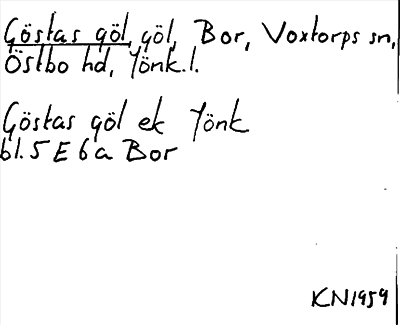 Göstas göl, göl, Bor, Voxtorps sn,
Östbo hd, Jönk.l.
Göstas göl ek Jönk
bl. 5 E 6 a Bor
KN1959